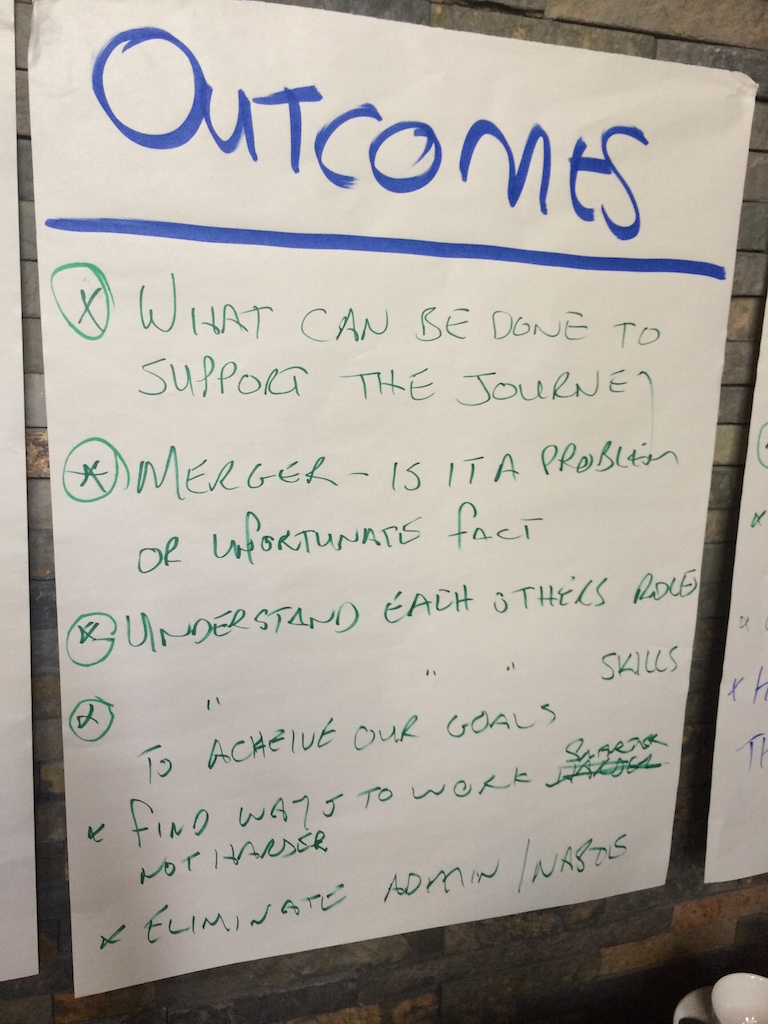 OUTCOMES
x WHAT CAN BE DONE TO
SUPPORT THE JOURNEY
x MERGER - IS IT A PROBLEM
OR UNFORTUNATE FACT
x UNDERSTAND EACH OTHERS ROLES
x " " " SKILLS
TO ACHEIVE OUR GOALS
x FIND WAYS TO WORK SMARTER HARDER
NOT HARDER
x ELIMINATE ADMIN /
x
x
x H
TH